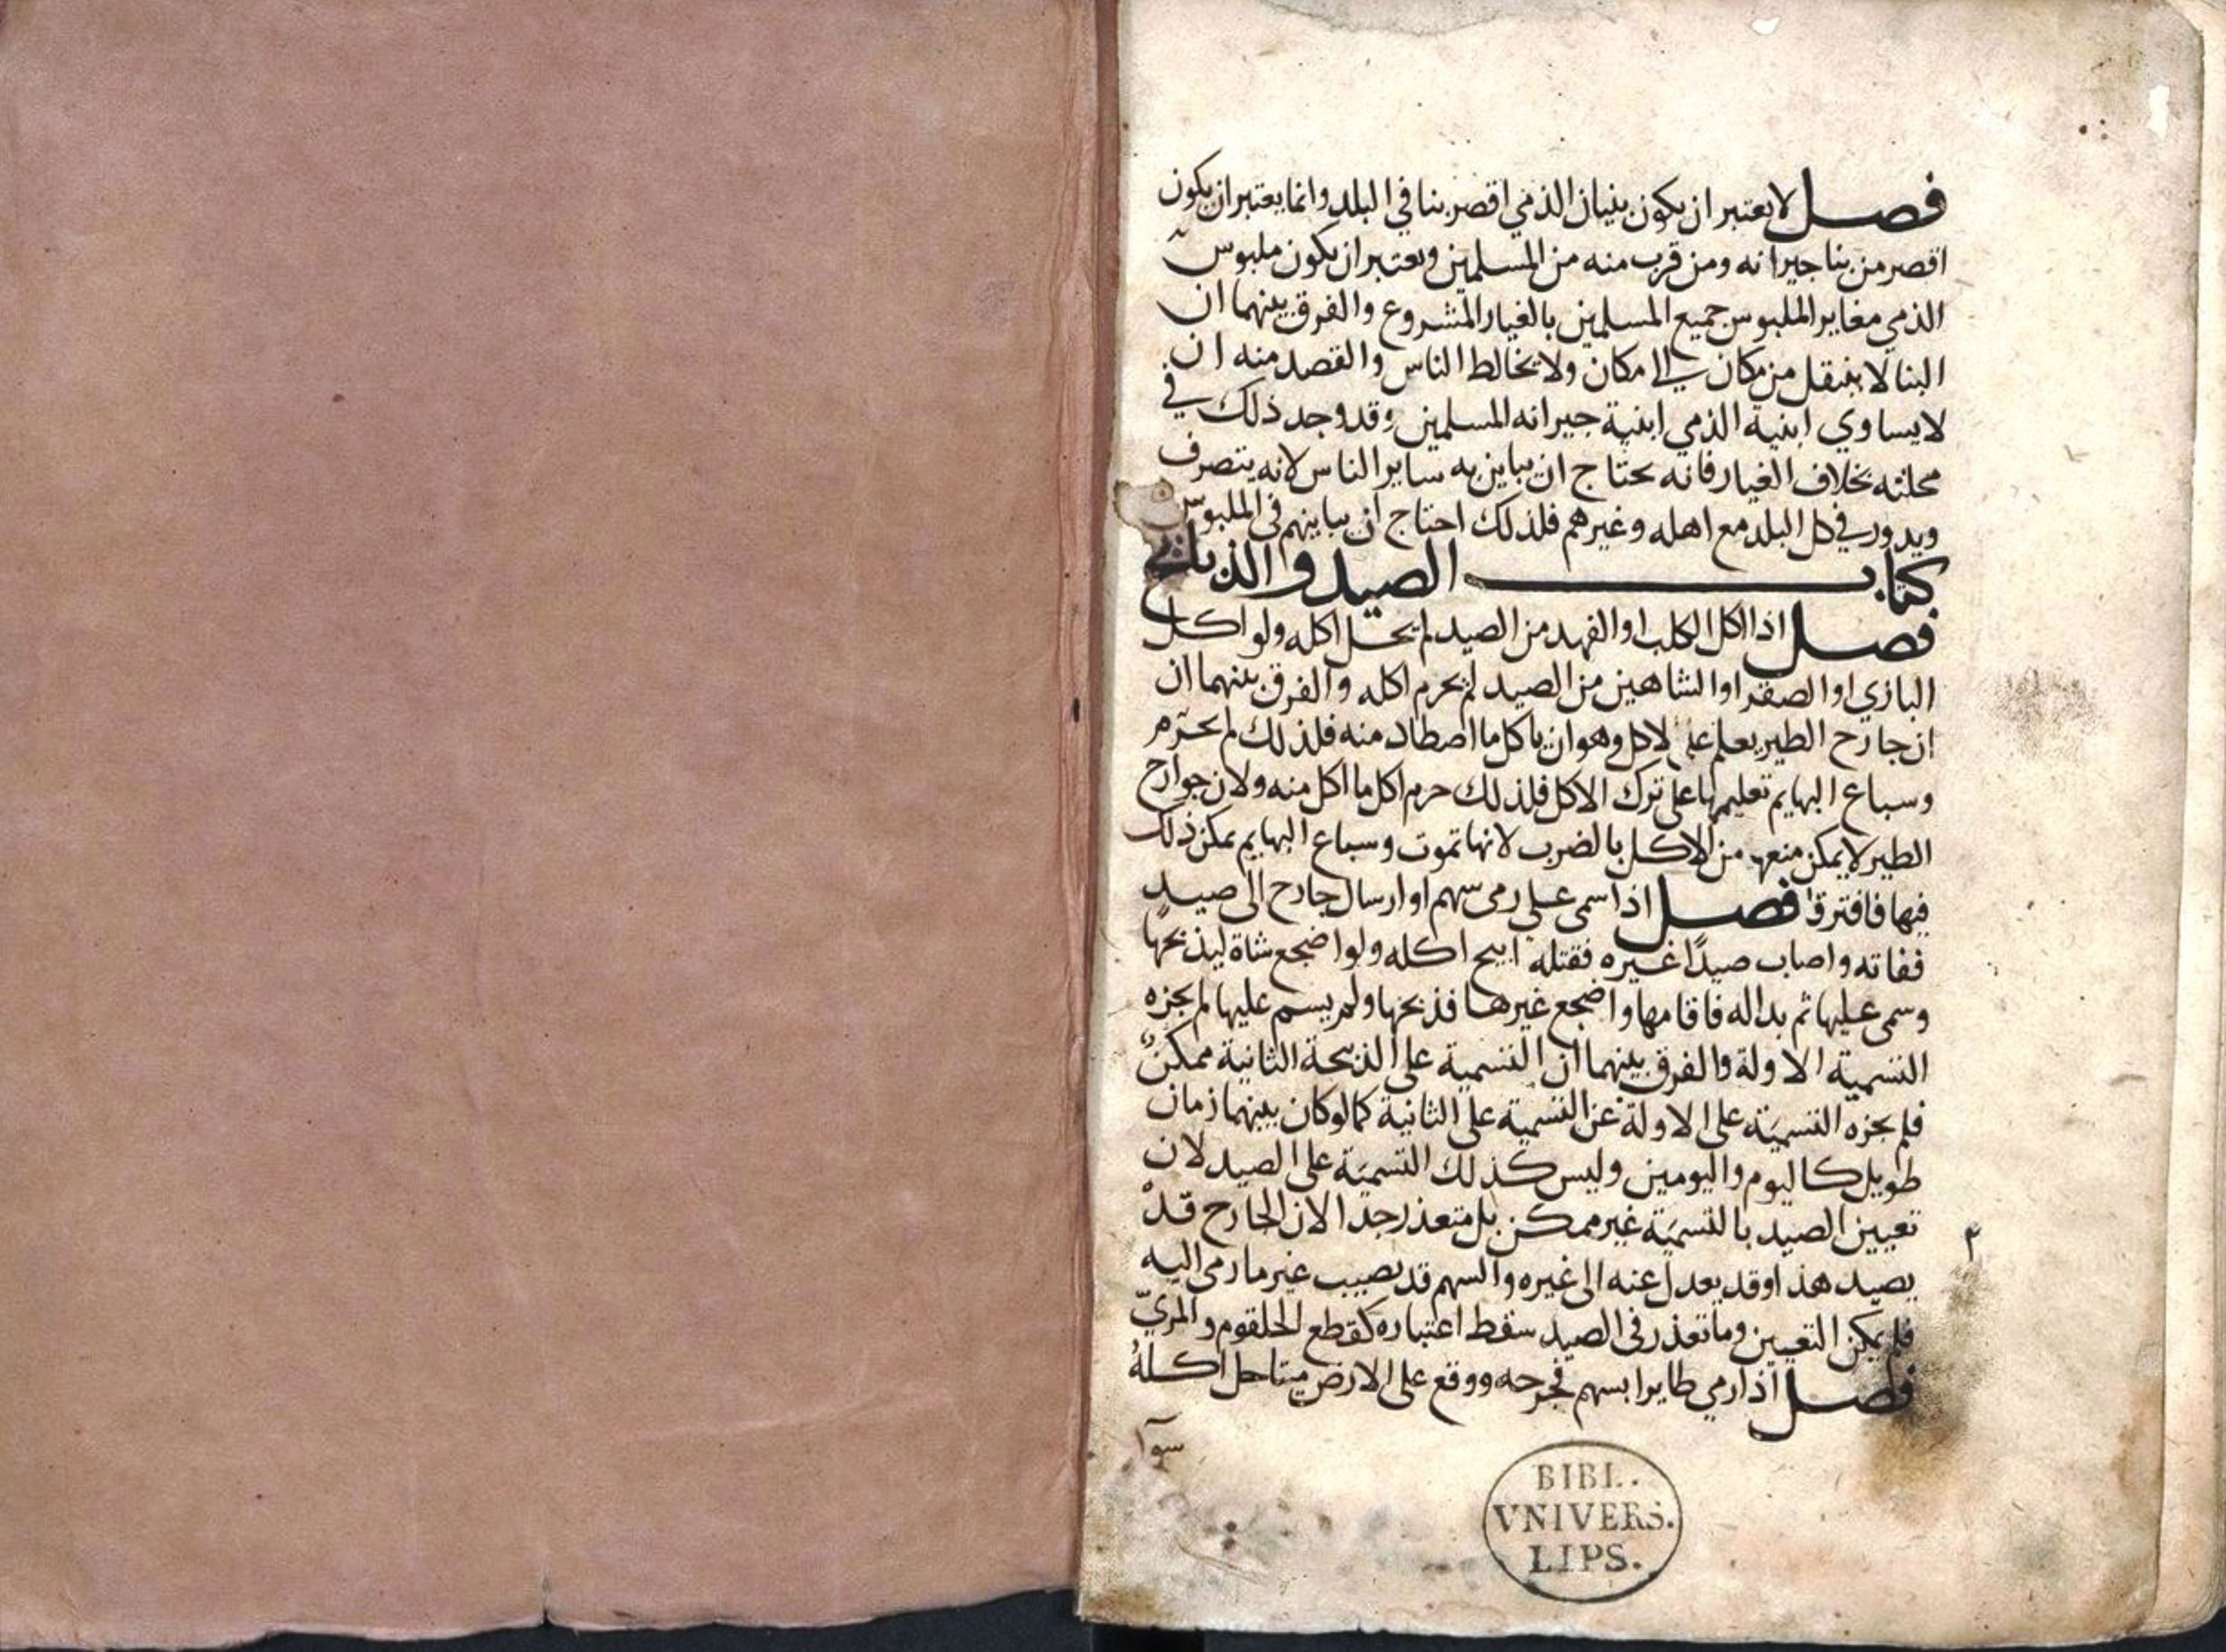 فصل لا يعتبر ان يكون بنيان الذمي اقصر بنا في البلد وانما يعتبر ان يكون
اقصر من بنا جيرانه ومن قرب منه من المسلمين ويعتبر ان يكون ملبوس
الذمي مغايرا لملبوس جميع المسلمين بالغيار المشروع والفرق بينهما ان
البنا لا ينتقل من مكان الى مكان ولا يخالط الناس والقصد منه ان
لا يساوي ابنية الذمي ابنية جيرانه المسلمين وقد وجد ذلك في
محلته بخلاف الغيار فانه يحتاج ان يباين به ساير الناس لانه يتصرف
ويدور في كل البلد مع اهله وغيرهم فلذلك احتاج ان يباينهم في الملبوس
كتاب الصيد والذبائح
فصل اذا اكل الكلب او الفهد من الصيد لم يحل اكله ولو اكل
البازي او الصقر او الشاهين من الصيد لم يحرم اكله والفرق بينهما ان
ان جارح الطير يعلم على لاكل وهو ان ياكل ما اصطاد منه فلذلك لم يحرم
وسباع البهايم تعليمها على ترك الاكل فلذلك حرم اكل ما اكل منه ولان جوارح
الطير لا يمكن منعها من الاكل بالضرب لانها تموت وسباع البهايم يمكن ذلك
فيها فافترقا فصل اذا سمى على رمى سهم او ارسال جارح الى صيد
ففاته واصاب صيدًا غيره فقتله ابيح اكله ولو اضجع شاة ليذبحها
وسمى عليها ثم بدا له فاقامها واضجع غيرها فذبحها ولم يسم عليها لم يجزه
التسمية الاولة والفرق بينهما ان التسمية على الذبيحة الثانية ممكن
فلم يجزه التسمية على الاولة عن التسمية على الثانية كما لو كان بينهما زمان
طويل كاليوم واليومين وليس كذلك التسمية على الصيد لان
تعيين الصيد بالتسمية غير ممكن بل متعذر جدا لان الجارح قد
يصيد هذا وقد يعدل عنه الى غيره والسهم قد يصيب غير ما رمى اليه
فلم يمكن التعيين وما تعذر في الصيد سقط اعتباره كقطع الحلقوم والمريّ
فصل اذا رمي طايرا بسهم فجرحه ووقع على الارض ميتا حل اكله
سوآ
BIBL.
VNIVERS.
LIPS.